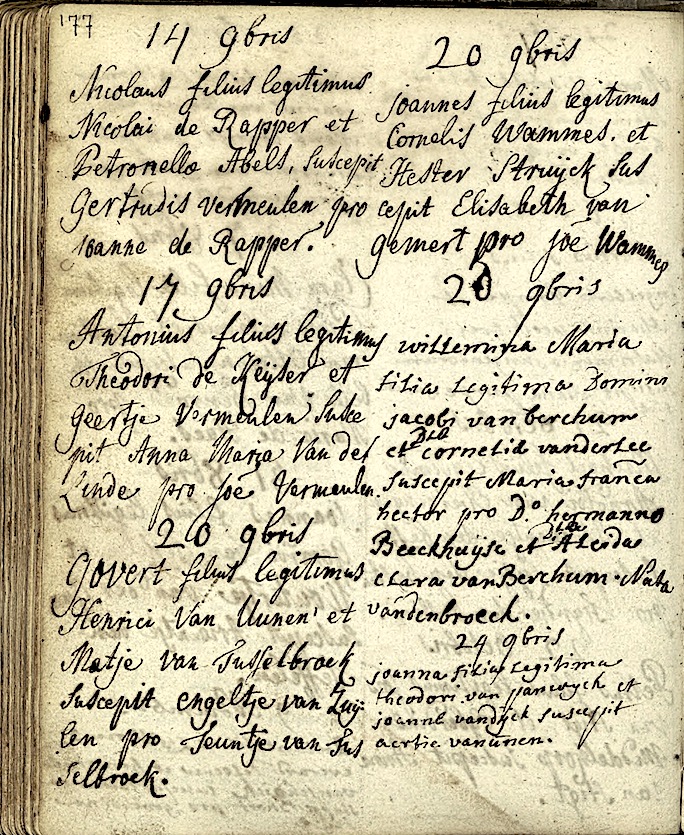 177
14 9bris
Nicolaus filius legitimus
Nicolai de Rapper et
Petronella Abels, suscepit
Gertrudis vermeulen pro
Ioanne de Rapper.
17 9bris
Antonius filius legitimus
Theodori de Keÿser et
geertje Vermeulen susce
pit Anna Maria Van der
Linde pro Joē Vermeulen.
20 9bris
govert filius legitimus
Henrici Van Uunen et
Matje van Tusselbroek
suscepit engeltje van Zuÿ-
len pro Teuntje van Tus
selbroek.
20 9bris
joannes filius legitimus
Cornelis Wammes. et
Hester Struÿck sus
cepit Elisabeth van
gemert pro Joē Wammes
20 9bris
willemina Maria
filia Legitima Domini
jacobi van berchum
et Dla cornelia vanderlee
suscepit Maria franca
hector pro D.o hermanno
Beeckhuÿse et Dla Aleida
clara van Berchum. Nata
vandenbroeck.
24 9bris
joanna filia Legitima
theodori van janwyck et
joanne vandÿck suscepit
aertie vanunen.